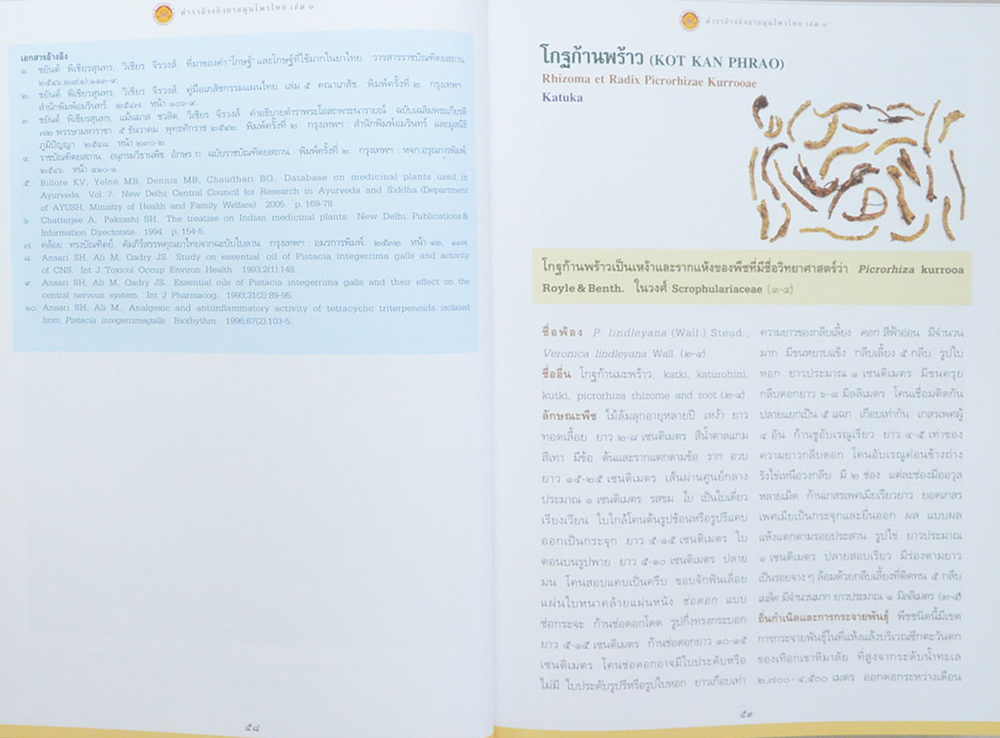 ตำราอ้างอิงยาสมุนไพรไทย เล่ม ๑
เอกสารอ้างอิง
๑. ชยันต์ พิเชียรสุนทร, วิเชียร จีรวงส์. ที่มาของคำ "โกษฐ์" และโกษฐ์ที่ใช้มากในยาไทย. วารสารราชบัณฑิตยสถาน.
๒๕๔๖;๒๘(๑):๑๑๓-๙.
๒. ชยันต์ พิเชียรสุนทร, วิเชียร จีรวงส์. คู่มือเภสัชกรรมแผนไทย เล่ม ๕ คณาเภสัช. พิมพ์ครั้งที่ ๒. กรุงเทพฯ :
สำนักพิมพ์อมรินทร์. ๒๕๔๗. หน้า ๑๐๖-๙.
๓. ชยันต์ พิเชียรสุนทร, แม้นมาส ชวลิต, วิเชียร จีรวงส์. คำอธิบายตำราพระโอสถพระนารายณ์ ฉบับเฉลิมพระเกียรติ
๗๒ พรรษามหาราชา ๕ ธันวาคม พุทธศักราช ๒๕๔๒. พิมพ์ครั้งที่ ๒. กรุงเทพฯ : สำนักพิมพ์อมรินทร์ และมูลนิธิ
ภูมิปัญญา. ๒๕๔๘. หน้า ๒๓๐-๒.
๔. ราชบัณฑิตยสถาน. อนุกรมวิธานพืช อักษร ก ฉบับราชบัณฑิตยสถาน. พิมพ์ครั้งที่ ๒. กรุงเทพฯ : หจก.อรุณการพิมพ์.
๒๕๔๖. หน้า ๔๑๐-๑.
๕. Billore KV, Yelne MB, Dennis MB, Chaudhari BG. Database on medicinal plants used in
Ayurveda. Vol. 7. New Delhi: Central Council for Research in Ayurveda and Siddha (Department
of AYUSH, Ministry of Health and Family Welfare). 2005. p.169-78.
๖. Chatterjee A, Pakrashi SH. The treatise on Indian medicinal plants. New Delhi: Publications &
Information Directorate. 1994. p.154-5.
๗. คล้อย ทรงบัณฑิตย์. คัมภีร์สรรพคุณยาไทยจากฉะบับใบลาน. กรุงเทพฯ : อมรการพิมพ์. ๒๕๓๒. หน้า ๑๒, ๑๑๗
๘. Ansari SH, Ali M, Qadry JS. Study on essential oil of Pistacia integerrima galls and activity
of CNS. Int J Toxicol Occup Environ Health. 1993;2(1):148.
๙. Ansari SH, Ali M, Qadry JS. Essential oils of Pistacia integerrima galls and their effect on the
central nervous system. Int J Pharmacog. 1993;31(2):89-95.
๑๐. Ansari SH, Ali M. Analgesic and antiinflammatory activity of tetracyclic triterpenoids isolated
from Pistacia integerrimagalls. Biorhythm. 1996;67(2):103-5.
๕๘
ตำราอ้างอิงยาสมุนไพรไทย เล่ม ๑
โกฐก้านพร้าว (KOT KAN PHRAO)
Rhizoma et Radix Picrorhizae Kurrooae
Katuka
โกฐก้านพร้าวเป็นเหง้าและรากแห้งของพืชที่มีชื่อวิทยาศาสตร์ว่า Picrorhiza kurrooa
Royle & Benth. ในวงศ์ Scrophulariaceae (๑-๔)
ชื่อพ้อง P. lindleyana (Wall.) Steud.,
Veronica lindleyana Wall. (๒-๔)
ชื่ออื่น โกฐก้านมะพร้าว, katki, katurohini,
kutki, picrorhiza rhizome and root (๒-๔)
ลักษณะพืช ไม้ล้มลุกอายุหลายปี เหง้า ยาว
ทอดเลื้อย ยาว ๒-๘ เซนติเมตร สีน้ำตาลแกม
สีเทา มีข้อ ต้นและรากแตกตามข้อ ราก อวบ
ยาว ๑๕-๒๕ เซนติเมตร เส้นผ่านศูนย์กลาง
ประมาณ ๑ เซนติเมตร รสขม ใบ เป็นใบเดี่ยว
เรียงเวียน ใบใกล้โคนต้นรูปช้อนหรือรูปรีแคบ
ออกเป็นกระจุก ยาว ๕-๑๕ เซนติเมตร ใบ
ตอนบนรูปพาย ยาว ๕-๑๐ เซนติเมตร ปลาย
มน โคนสอบแคบเป็นครีบ ขอบจักฟันเลื่อย
แผ่นใบหนาคล้ายแผ่นหนัง ช่อดอก แบบ
ช่อกระจะ ก้านช่อดอกโดด รูปกึ่งทรงกระบอก
ยาว ๕-๑๕ เซนติเมตร ก้านช่อดอกยาว ๑๐-๑๕
เซนติเมตร โคนช่อดอกอาจมีใบประดับหรือ
ไม่มี ใบประดับรูปรีหรือรูปใบหอก ยาวเกือบเท่า
ความยาวของกลีบเลี้ยง ดอก สีฟ้าอ่อน มีจำนวน
มาก มีขนหยาบแข็ง กลีบเลี้ยง ๕ กลีบ รูปใบ
หอก ยาวประมาณ ๑ เซนติเมตร มีขนครุย
กลีบดอกยาว ๖-๘ มิลลิเมตร โคนเชื่อมติดกัน
ปลายแยกเป็น ๕ แฉก เกือบเท่ากัน เกสรเพศผู้
๔ อัน ก้านชูอับเรณูเรียว ยาว ๔-๕ เท่าของ
ความยาวกลีบดอก โคนอับเรณูค่อนข้างถ่าง
รังไข่เหนือวงกลีบ มี ๒ ช่อง แต่ละช่องมีออวุล
หลายเม็ด ก้านเกสรเพศเมียเรียวยาว ยอดเกสร
เพศเมียเป็นกระจุกและยื่นออก ผล แบบผล
แห้งแตกตามรอยประสาน รูปไข่ ยาวประมาณ
๑ เซนติเมตร ปลายสอบเรียว มีร่องตามยาว
เป็นรอยจาง ๆ ล้อมด้วยกลีบเลี้ยงที่ติดทน ๕ กลีบ
เมล็ด มีจำนวนมาก ยาวประมาณ ๑ มิลลิเมตร (๒-๕)
ถิ่นกำเนิดและการกระจายพันธุ์ พืชชนิดนี้มีเขต
การกระจายพันธุ์ในที่แห้งแล้งบริเวณซีกตะวันตก
ของเทือกเขาหิมาลัย ที่สูงจากระดับน้ำทะเล
๒,๗๐๐-๔,๕๐๐ เมตร ออกดอกระหว่างเดือน
๕๙